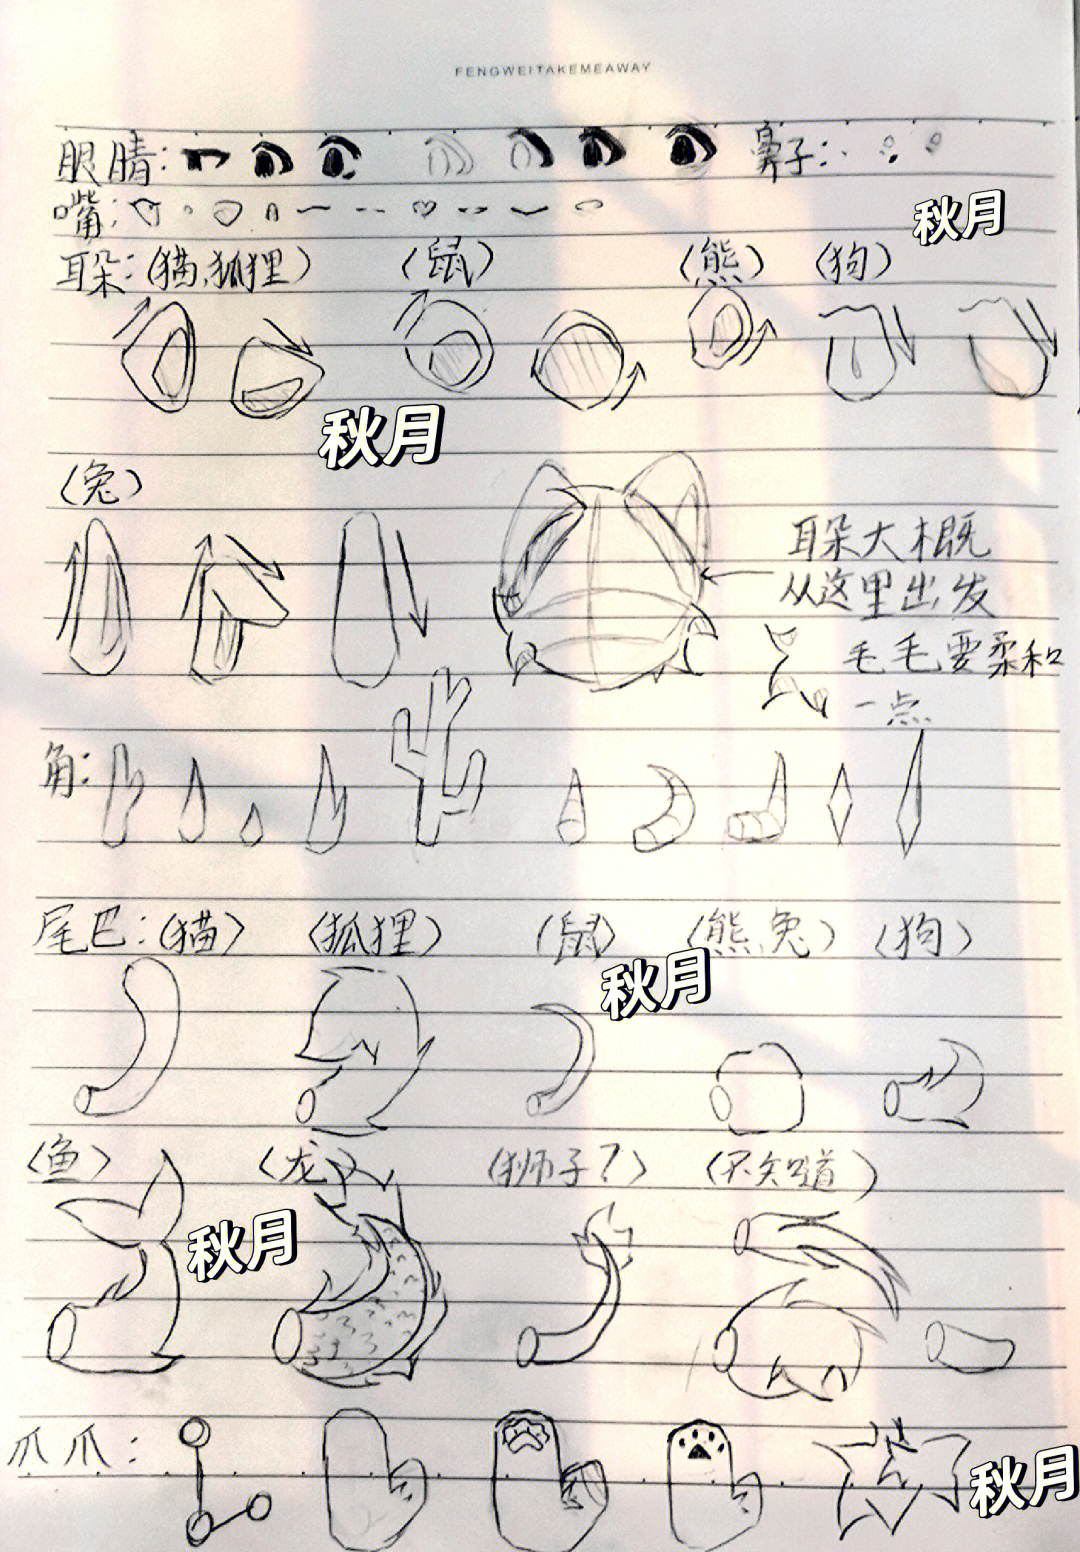 FENGWEITAKEMEAWAY
眼睛： 鼻子：
嘴：
秋月
耳朵：（猫、狐狸） （鼠） （熊） （狗）
秋月
（兔）
耳朵大概
从这里出发
毛毛要柔和
一点
角：
尾巴：（猫） （狐狸） （鼠） （熊、兔） （狗）
秋月
（鱼） （龙） （狮子？） （不知道）
秋月
爪爪：
秋月